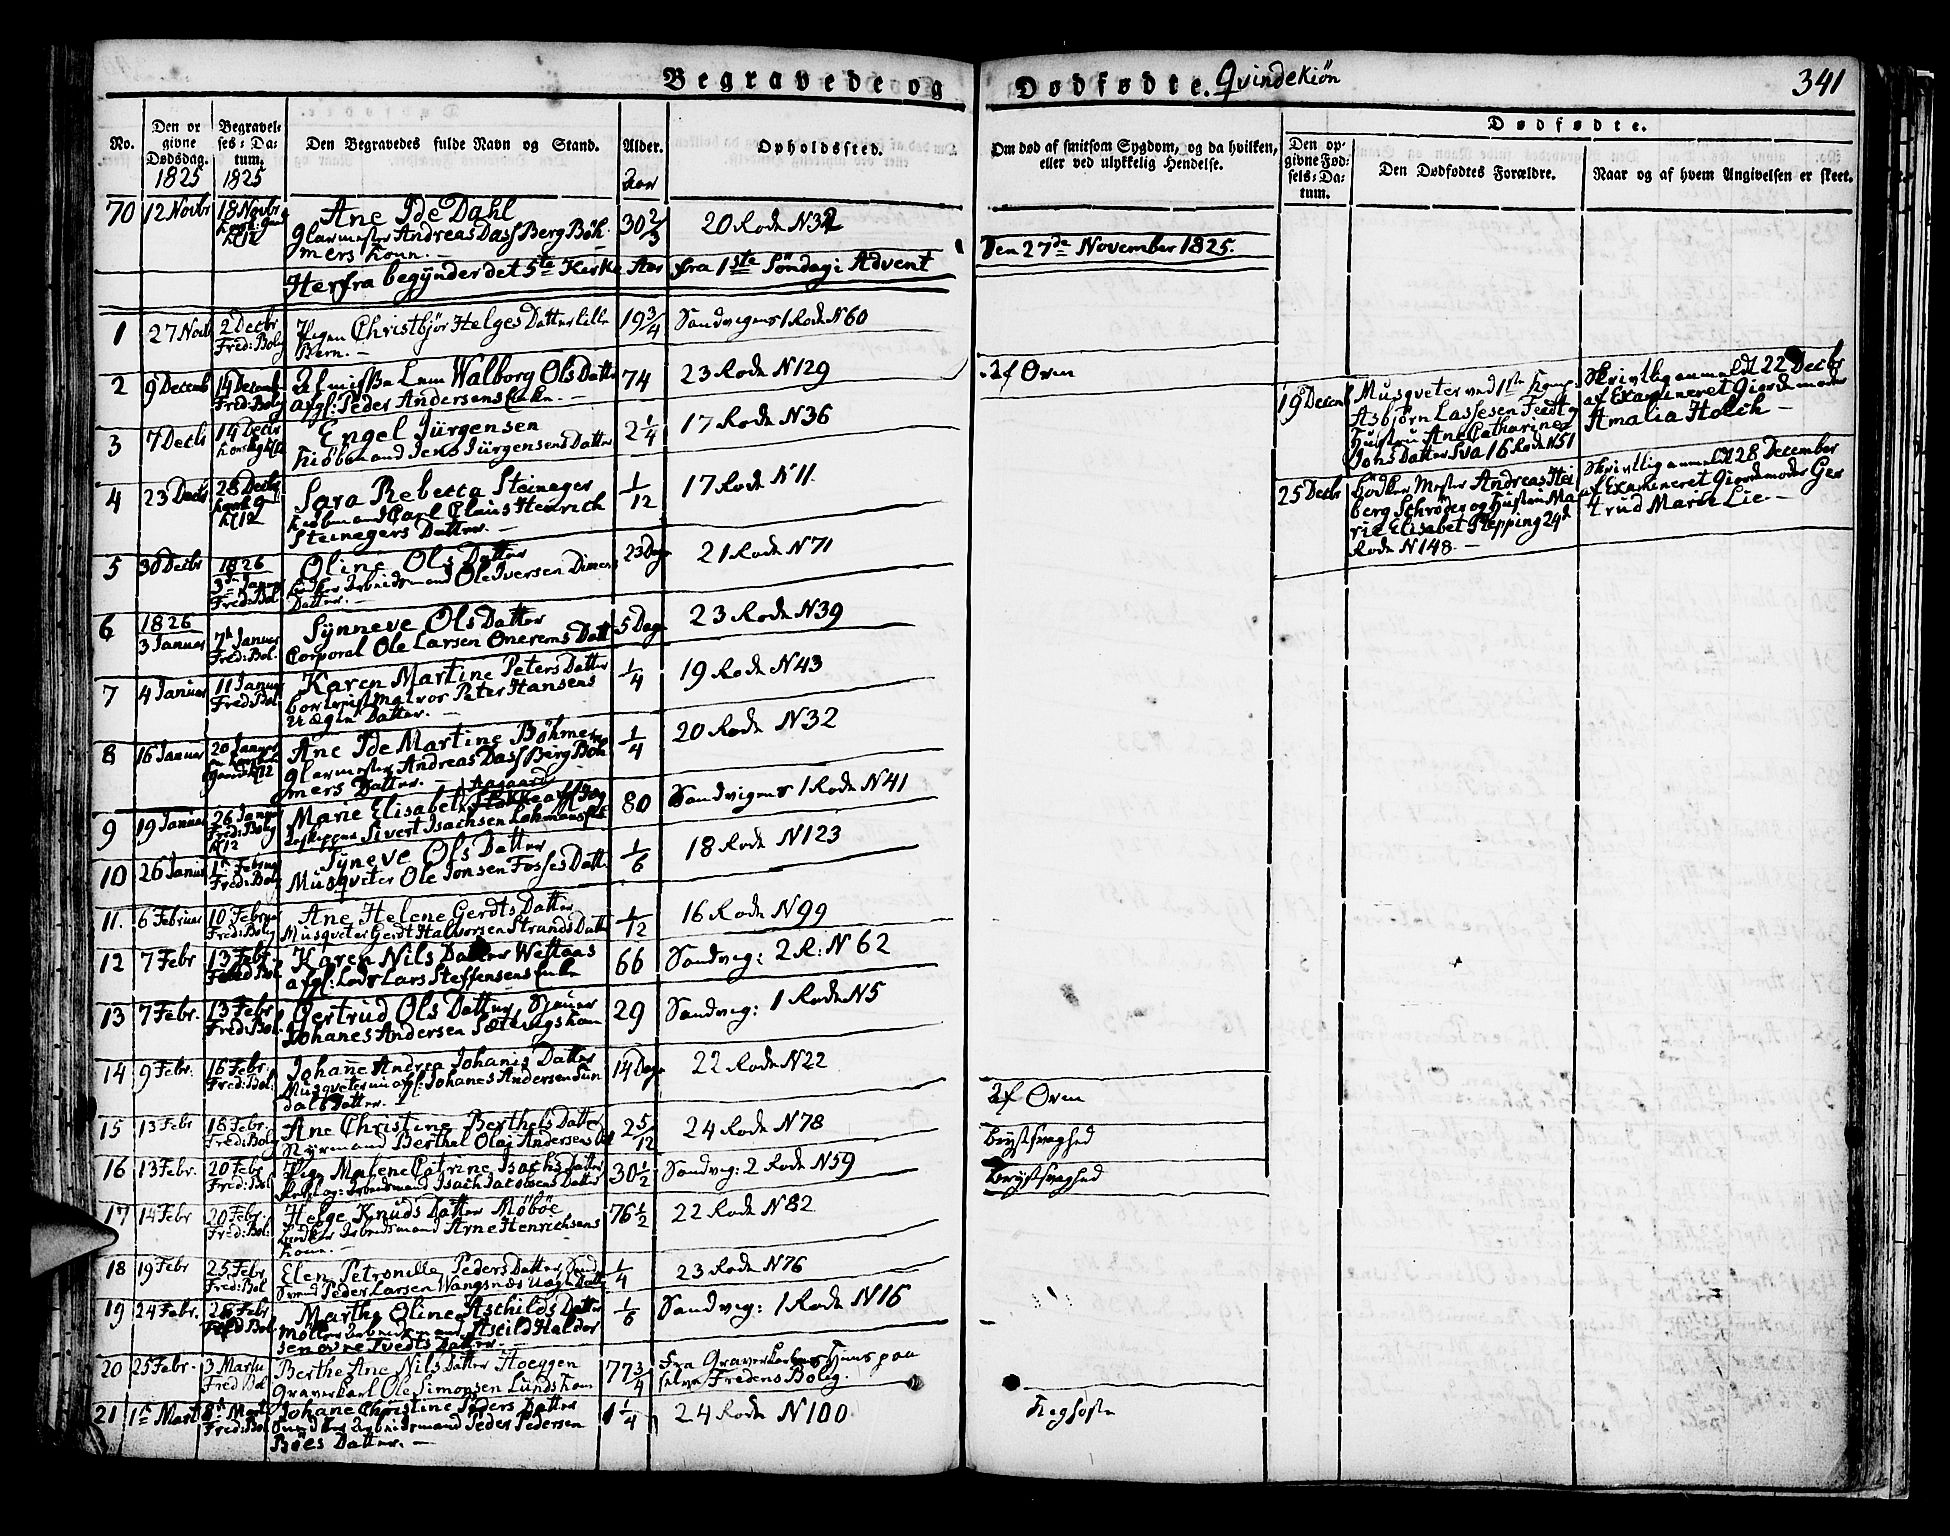 Begravede og Dødfødte. Qvindekiøn
341
No.
Den opgivne Dødsdag. 1825
Begravelses-Datum. 1825
Den Begravedes fulde Navn og Stand.
Alder. Aar
Opholdssted.
Om død af smitsom Sygdom, og da hvilken, eller ved ulykkelig Hendelse.
Dødfødte.
Den opgivne Fødsels-Datum.
Den Dødfødtes Forældre.
Naar og af hvem Angivelsen er skeet.
70 12 Novbr 18 Novbr Kl 12 Ane Ide Dahl 30 2/3 20 Rode N 32
Glarmester Andreas Dass Berg Böh
mers Kone.
Herfra begÿnder det 5te Kirke Aar fra 1ste Søndag i Advent Den 27de November 1825.
1 27 Novb 2 Decbr Fred: Bolg Pigen Christbjör Helges Datter Lille 19 3/4 Sandvigens 1 Rode N 60
Bern.
2 9 Decemb 14 Decemb Fred: Bolg Lem Walborg Ols Datter 74 23 Rode N 129 Af Øven
afgl: Peder Andersens Enke.
3 7 Decbr 14 Decbr Engel Jürgensen 2 1/4 17 Rode N 36
Kiöbmand Jens Jürgensens Datter
4 23 Decbr 28 Decbr Kl 12 Sara Rebecca Steineger 1/12 17 Rode N 11.
Kiöbmand Carl Claus Henrich
Steinegers Datter.
5 30 Decbr 1826 3die Januar Fred: Bol Oline Ols Datter 23 Dage 21 Rode N 71
Arbeidsmand Ole Iversen
Datter.
6 1826 3 Januar 7de Januar Fred: Bol. Sÿnneve Ols Datter 5 Dage 23 Rode N 39
Corporal Ole Larsen Datter
7 4 Januar 11 Januar Fred: Bol Karen Martine Peters Datter 1/4 19 Rode N 43
Peter Hansens
Uægte Datter.
8 16 Januar 20 Januar Kl 12 Ane Ide Martine Böhmer 1/4 20 Rode N 32
Glarmester Andreas Dass Berg Böh
mers Datter.
9 19 Januar 26 Januar Fred: Bolg Kl 12 Marie Elisabeth Aagaard 80 Sandvigens 1 Rode N 41
Sivert Isachsen
10 26 Januar 1ste Februar Fred: Bolg Sÿneve Ols Datter 1/6 18 Rode N 123
Musqveter Ole Jonsen Fosses Datter
11. 6 Februar 10 Februar Fred: Bolg Ane Helene Gerdts Datter 1/12 16 Rode N 99
Musqveter Gerdt Halvorsen Strands Datter
12 7 Febr 13 Febr Fred: Bol Karen Nils Datter Westaas 66 Sandvig: 2 R: N 62
afgl: Lods Lars Steffensens Enke
13 7 Febr. 13 Febr Fred: Bol. Gertrud Ols Datter 29 Sandvig: 1 Rode N 5
Johanes Andersen Kone
14 9 Febr. 16 Febr. Fred: Bol. Johane Andrea Johanis Datter 14 Dage 22 Rode N 22 Af Øven
Musqveter afgl: Johanes Andersen Sun
dals Datter.
15 13 Febr 18 Febr. Fred: Bolg Ane Christine Berthels Datter 2 5/12 24 Rode N 78 Brystsvaghed
Stÿrmand Berthel Olai Andersens
16 13 Febr. 20 Febr Fred: Bol Pigen Malene Catrine Isachs Datter 30 1/2 Sandvig: 2 Rode N 59 Brystsvaghed
Arbeidsmand Isach Jacobsens Datter
17 14 Febr 20 Febr. Fred: Bol: Helge Knuds Datter Möböe 76 1/2 22 Rode N 82
Arbeidsmand Arne Henrichsens
Kone.
18 19 Febr 25 Febr Fred: Bol Elen Petronille Peders Datter 1/4 23 Rode N 76
Svend Peder Larsen Wangsnæs Uægte Datter
19 24 Febr. 28 Febr Fred: Bol. Marthe Oline Aschilds Datter 1/6 Sandvig: 1 Rode N 16
Ascild Haldor
sen Tvedts Datter.
20 25 Febr. 3 Martii Fred Bol Berthe Ane Nils Datter Hoeggen 77 3/4 Fra Graverkarlens Huus paa
Graverkarl Ole Simonsen Lunds Kone selve Fredens Bolig.
21 1ste Marti 8de Marti Fred: Bol Johane Christine Peders Datter 1 1/4 24 Rode N 100
Peder Pedersen
Böes Datter.
19 Decemb Musqveter ved 1ste Comp: Skriftlig anmeldt 22 Decbr
Asbjörn Lassesen Tvedt og af Examineret Giordemoder
Hustru Ane Catharine Amalia Holch
Jons Datter 16 Rode N 51
25 Decbr Bödker Mester Andreas Hei Skriftlig anmeldt 28 December
berg Schröder og Hustru Ma af Examineret Giordemoder Ger
rie Elisabet Stepping 24de trud Marie Lie.
Rode N 148.